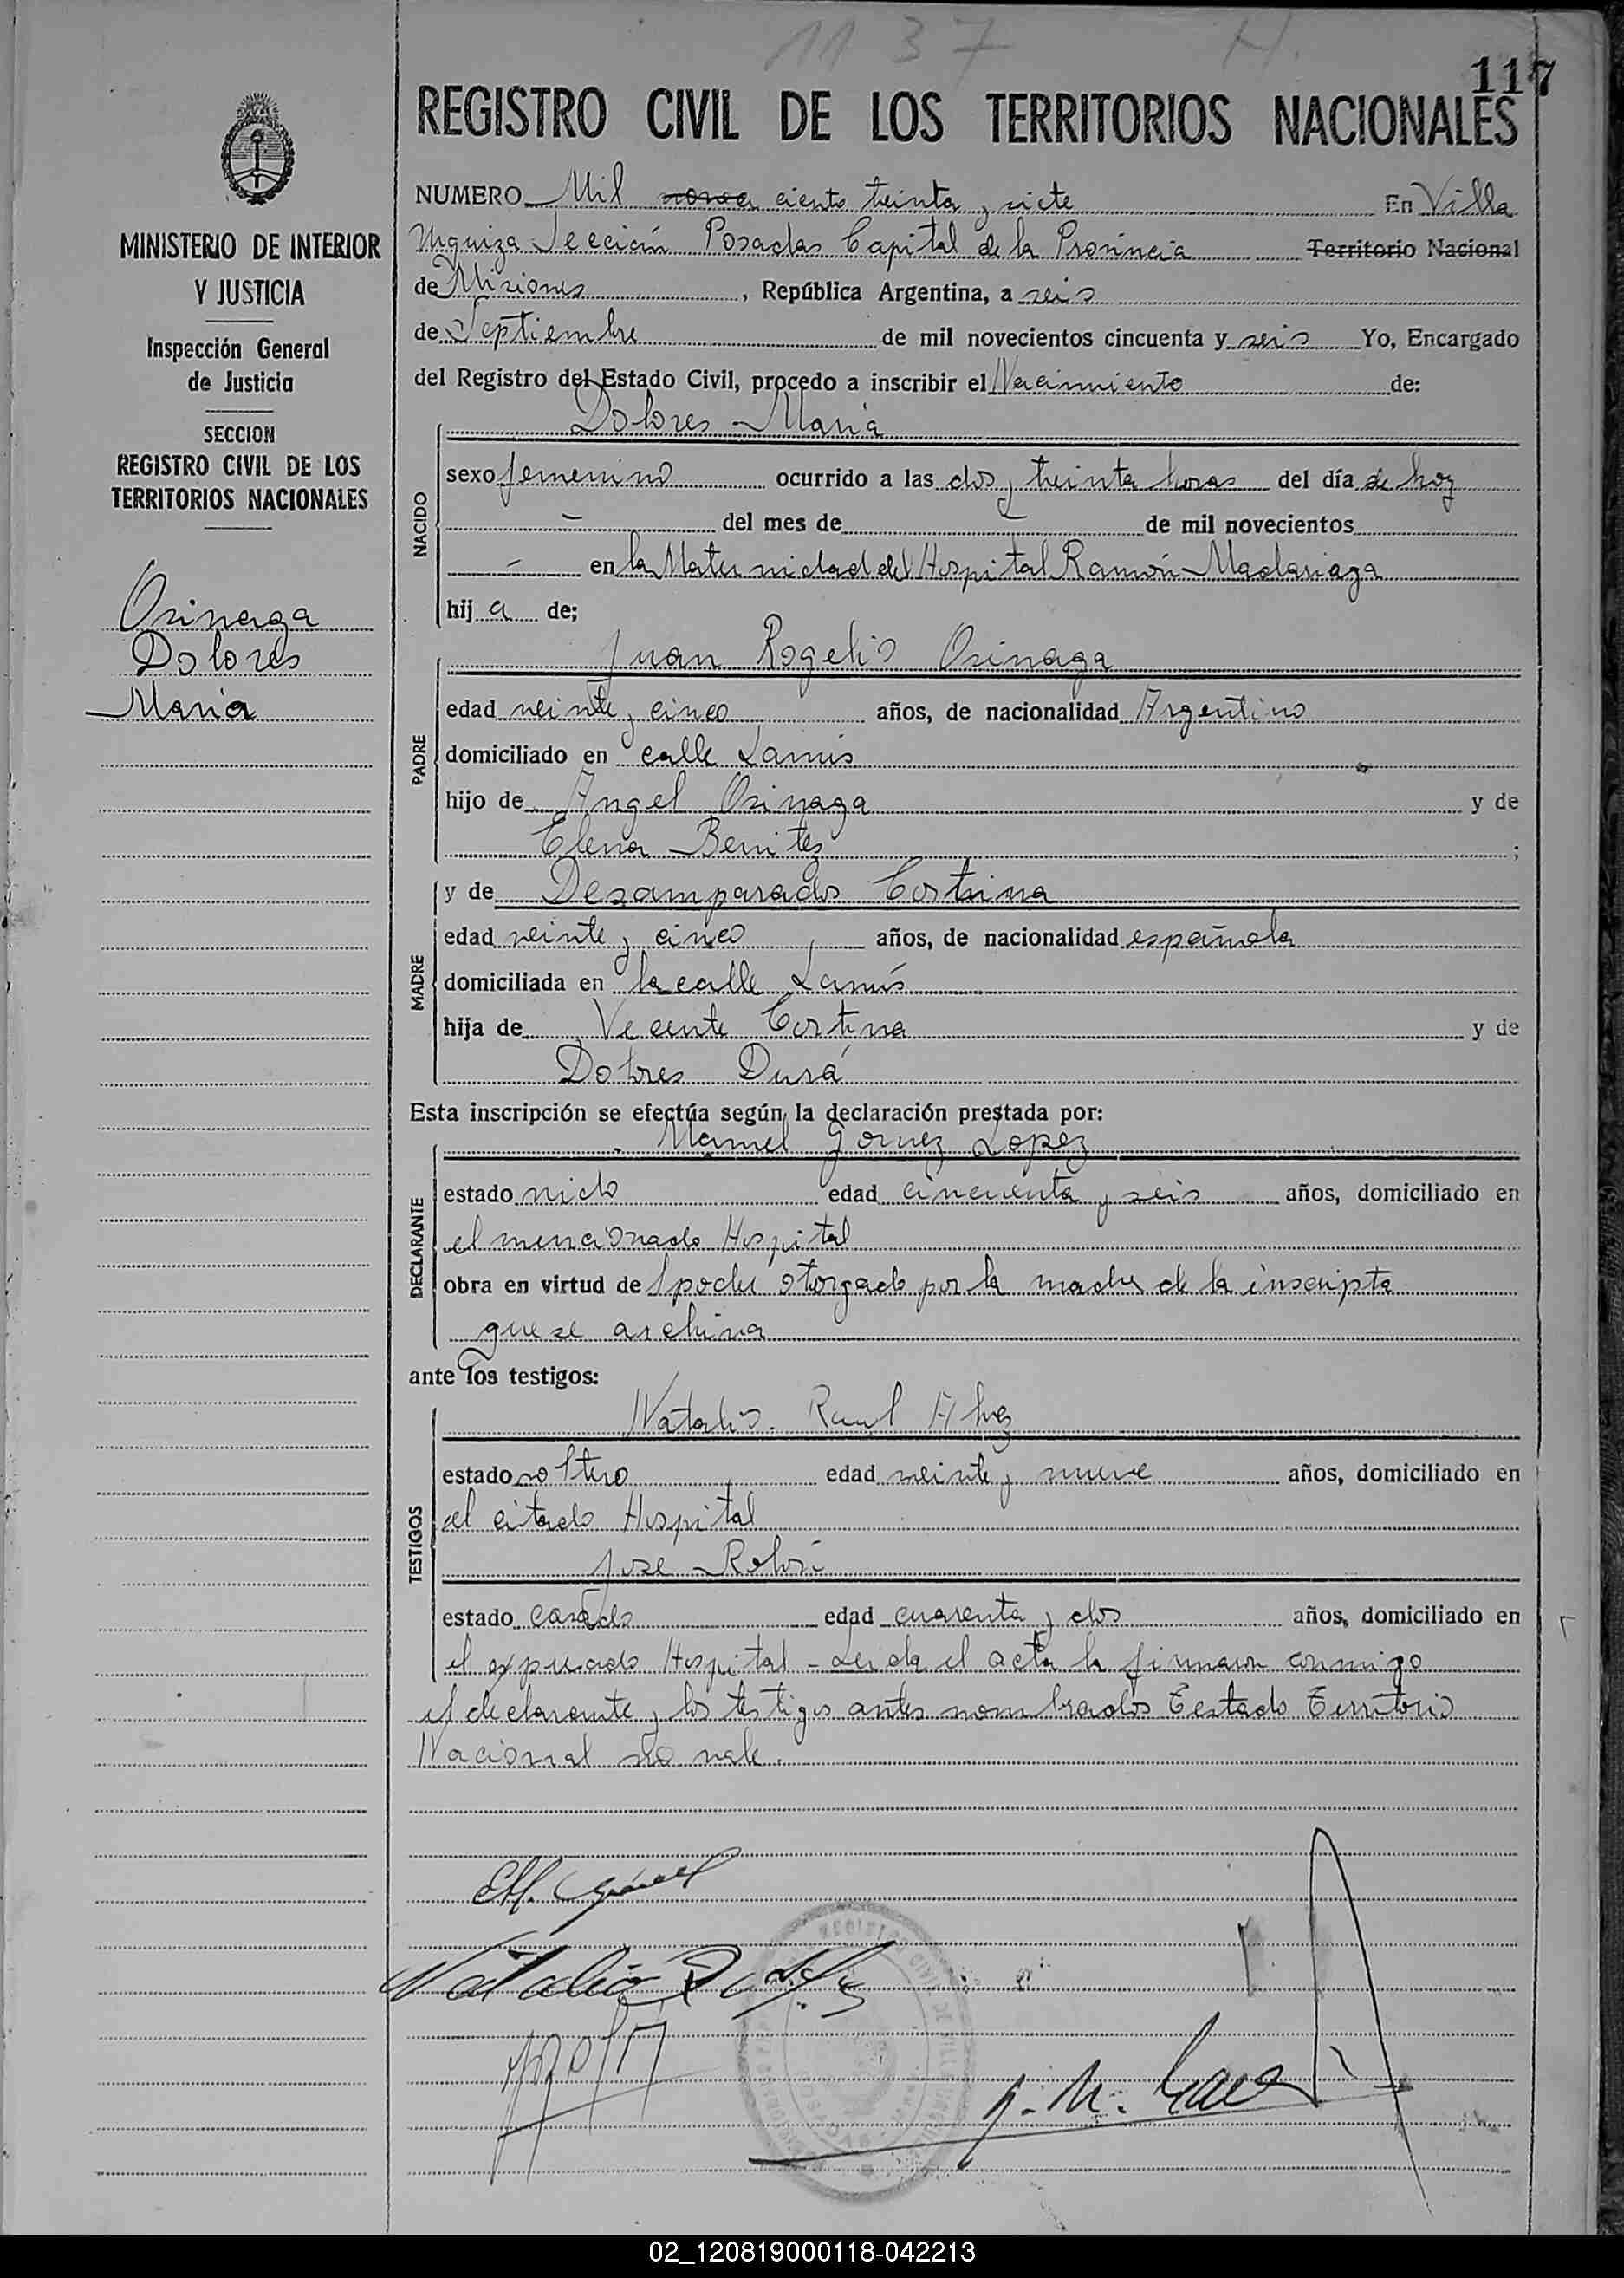 1137 H.
117
REGISTRO CIVIL DE LOS TERRITORIOS NACIONALES
MINISTERIO DE INTERIOR
Y JUSTICIA
Inspección General
de Justicia
SECCION
REGISTRO CIVIL DE LOS
TERRITORIOS NACIONALES
Osinaga
Dolores
Maria
NUMERO Mil nove ciento treinta y siete En Villa
Urquiza Sección Posadas Capital de la Provincia Territorio Nacional
de Misiones, República Argentina, a seis
de Septiembre de mil novecientos cincuenta y seis Yo, Encargado
del Registro del Estado Civil, procedo a inscribir el Nacimiento de:
NACIDO
Dolores Maria
sexo femenino ocurrido a las dos y treinta horas del día de hoy
- del mes de - de mil novecientos
- en la Maternidad del Hospital Ramón Madariaga
hij a de;
PADRE
Juan Rogelio Osinaga
edad veinte y cinco años, de nacionalidad Argentino
domiciliado en calle Lanús
hijo de Angel Osinaga y de
Elena Benitez ;
MADRE
y de Desamparados Cortina
edad veinte y cinco años, de nacionalidad española
domiciliada en la calle Lanús
hija de Vicente Cortina y de
Dolores Durá
Esta inscripción se efectúa según la declaración prestada por:
DECLARANTE
Manuel Gomez Lopez
estado viudo edad cincuenta y seis años, domiciliado en
el mencionado Hospital
obra en virtud de poder otorgado por la madre de la inscripta
que se archiva
ante los testigos:
TESTIGOS
Natalio Raul Alvez
estado soltero edad veinte y nueve años, domiciliado en
el citado Hospital
Jose
estado casado edad cuarenta y dos años, domiciliado en
el expresado Hospital - Leida el acta la firmaron conmigo
el declarante y los testigos antes nombrados Testado Territorio
Nacional no vale.
02_120819000118-042213